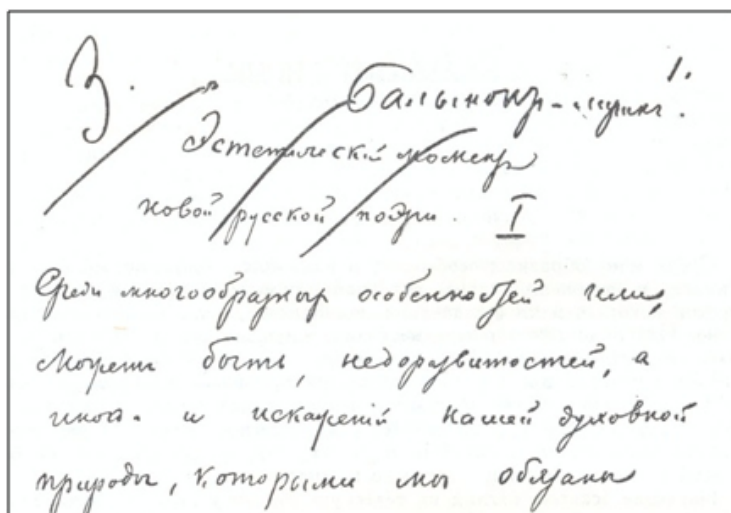 3.
1.
Бальмонт-лирик.
Эстетический момент
новой русской поэзии. I
Среди многообразных особенностей или,
может быть, недоразвитостей, а
иногда и искажений нашей духовной
природы, которыми мы обязаны